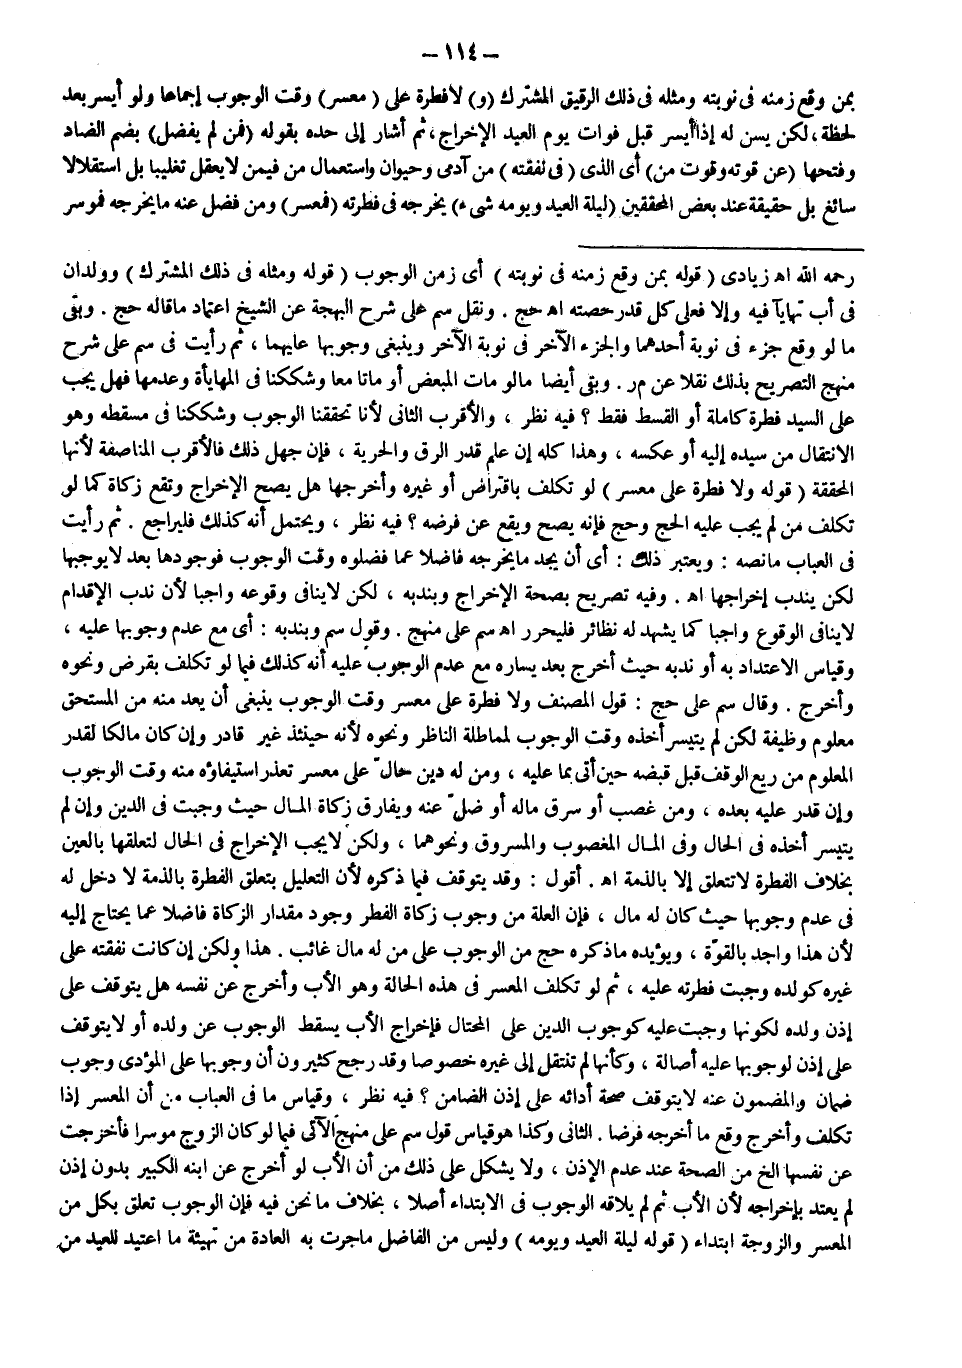 – ١١٤ –
بمن وقع زمنه فى نوبته ومثله فى ذلك الرقيق المشترك (و) لا فطرة على (معسر) وقت الوجوب إجماعا ولو أيسر بعد
لحظة، لكن يسن له إذا أيسر قبل فوات يوم العيد الإخراج، ثم أشار إلى حده بقوله (فمن لم يفضل) بضم الضاد
وفتحها (عن قوته وقوت من) أى الذى (فى نفقته) من آدمى وحيوان واستعمال من فيمن لايعقل تغليبا بل استقلالا
سائغ بل حقيقة عند بعض المحققين (ليلة العيد ويومه شىء) يخرجه فى فطرته (فمعسر) ومن فضل عنه مايخرجه فموسر
رحمه الله اه زيادى ( قوله بمن وقع زمنه فى نوبته ) أى زمن الوجوب ( قوله ومثله فى ذلك المشترك ) وولدان
فى أب تهايآ فيه وإلا فعلى كل قدر حصته اه حج . ونقل سم على شرح البهجة عن الشيخ اعتماد ماقاله حج . وبقى
ما لو وقع جزء فى نوبة أحدهما والجزء الآخر فى نوبة الآخر وينبغى وجوبها عليهما ، ثم رأيت فى سم على شرح
منهج التصريح بذلك نقلا عن مر . وبقى أيضا مالو مات المبعض أو ماتا معا وشككنا فى المهايأة وعدمها فهل يجب
على السيد فطرة كاملة أو القسط فقط ؟ فيه نظر ، والأقرب الثانى لأنا تحققنا الوجوب وشككنا فى مسقطه وهو
الانتقال من سيده إليه أو عكسه ، وهذا كله إن علم قدر الرق والحرية ، فإن جهل ذلك فالأقرب المناصفة لأنها
المحققة ( قوله ولا فطرة على معسر ) لو تكلف باقتراض أو غيره وأخرجها هل يصح الإخراج وتقع زكاة كما لو
تكلف من لم يجب عليه الحج وحج فإنه يصح ويقع عن فرضه ؟ فيه نظر ، ويحتمل أنه كذلك فليراجع . ثم رأيت
فى العباب مانصه : ويعتبر ذلك : أى أن يجد مايخرجه فاضلا عما فضلوه وقت الوجوب فوجودها بعد لايوجبها
لكن يندب إخراجها اه . وفيه تصريح بصحة الإخراج وبندبه ، لكن لاينافى وقوعه واجبا لأن ندب الإقدام
لاينافى الوقوع واجبا كما يشهد له نظائر فليحرر اه سم على منهج . وقول سم وبندبه : أى مع عدم وجوبها عليه ،
وقياس الاعتداد به أو ندبه حيث أخرج بعد يساره مع عدم الوجوب عليه أنه كذلك فيما لو تكلف بقرض ونحوه
وأخرج . وقال سم على حج : قول المصنف ولا فطرة على معسر وقت الوجوب ينبغى أن يعد منه من المستحق
معلوم وظيفة لكن لم يتيسر أخذه وقت الوجوب لمماطلة الناظر ونحوه لأنه حينئذ غير قادر وإن كان مالكا لقدر
المعلوم من ريع الوقف قبل قبضه حين أتى بما عليه ، ومن له دين حالّ على معسر تعذر استيفاؤه منه وقت الوجوب
وإن قدر عليه بعده ، ومن غصب أو سرق ماله أو ضلّ عنه ويفارق زكاة المال حيث وجبت فى الدين وإن لم
يتيسر أخذه فى الحال وفى المال المغصوب والمسروق ونحوهما ، ولكن لايجب الإخراج فى الحال لتعلقها بالعين
بخلاف الفطرة لاتتعلق إلا بالذمة اه . أقول : وقد يتوقف فيما ذكره لأن التعليل بتعلق الفطرة بالذمة لا دخل له
فى عدم وجوبها حيث كان له مال ، فإن العلة من وجوب زكاة الفطر وجود مقدار الزكاة فاضلا عما يحتاج إليه
لأن هذا واجد بالقوّة ، ويؤيده ماذكره حج من الوجوب على من له مال غائب . هذا ولكن إن كانت نفقته على
غيره كولده وجبت فطرته عليه ، ثم لو تكلف المعسر فى هذه الحالة وهو الأب وأخرج عن نفسه هل يتوقف على
إذن ولده لكونها وجبت عليه كوجوب الدين على المحتال فإخراج الأب يسقط الوجوب عن ولده أو لايتوقف
على إذن لوجوبها عليه أصالة ، وكأنها لم تنتقل إلى غيره خصوصا وقد رجح كثيرون أن وجوبها على المؤدى وجوب
ضمان والمضمون عنه لايتوقف صحة أدائه على إذن الضامن ؟ فيه نظر ، وقياس ما فى العباب من أن المعسر إذا
تكلف وأخرج وقع ما أخرجه فرضا . الثانى وكذا هو قياس قول سم على منهج الآتى فيما لو كان الزوج موسرا فأخرجت
عن نفسها الخ من الصحة عند عدم الإذن ، ولا يشكل على ذلك من أن الأب لو أخرج عن ابنه الكبير بدون إذن
لم يعتد بإخراجه لأن الأب ثم لم يلاقه الوجوب فى الابتداء أصلا ، بخلاف ما نحن فيه فإن الوجوب تعلق بكل من
المعسر والزوجة ابتداء ( قوله ليلة العيد ويومه ) وليس من الفاضل ماجرت به العادة من تهيئة ما اعتيد للعيد من